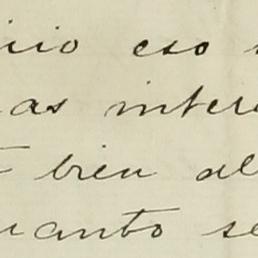 icio eso
as inter
bien al
uanto se